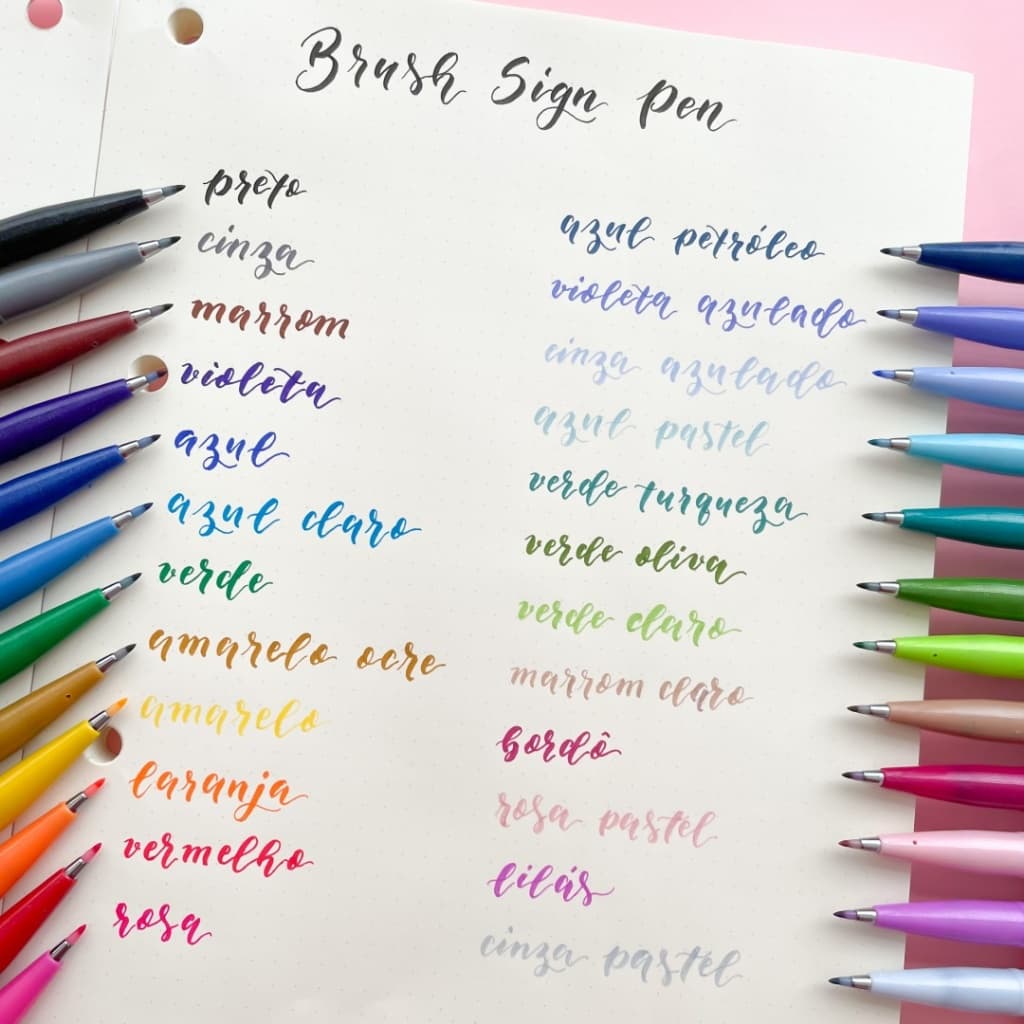 Brush Sign Pen
preto
cinza
marrom
violeta
azul
azul claro
verde
amarelo ocre
amarelo
laranja
vermelho
rosa
azul petróleo
violeta azulado
cinza azulado
azul pastel
verde turqueza
verde oliva
verde claro
marrom claro
bordô
rosa pastel
lilás
cinza pastel